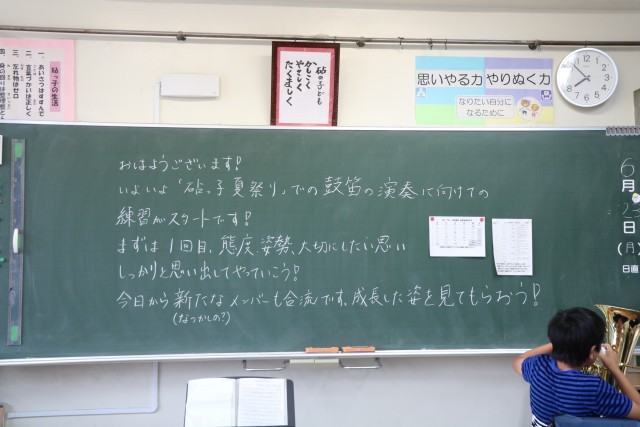 砧っ子の生活
一、あいさつはすすんで
二、言葉づかいは正しく
三、忘れ物はゼロ
砧の子ども
かしこく
やさしく
たくましく
思いやる力 やりぬく力
なりたい自分に
なるために
おはようございます!
いよいよ「砧っ子夏祭り」での鼓笛の演奏に向けての
練習がスタートです!
まずは1回目、態度、姿勢、大切にしたい思い
しっかりと思い出してやっていこう!
今日から新たなメンバーも合流です。成長した姿を見てもらおう!
(なつかしの?)
6
月
日
(月)
日直